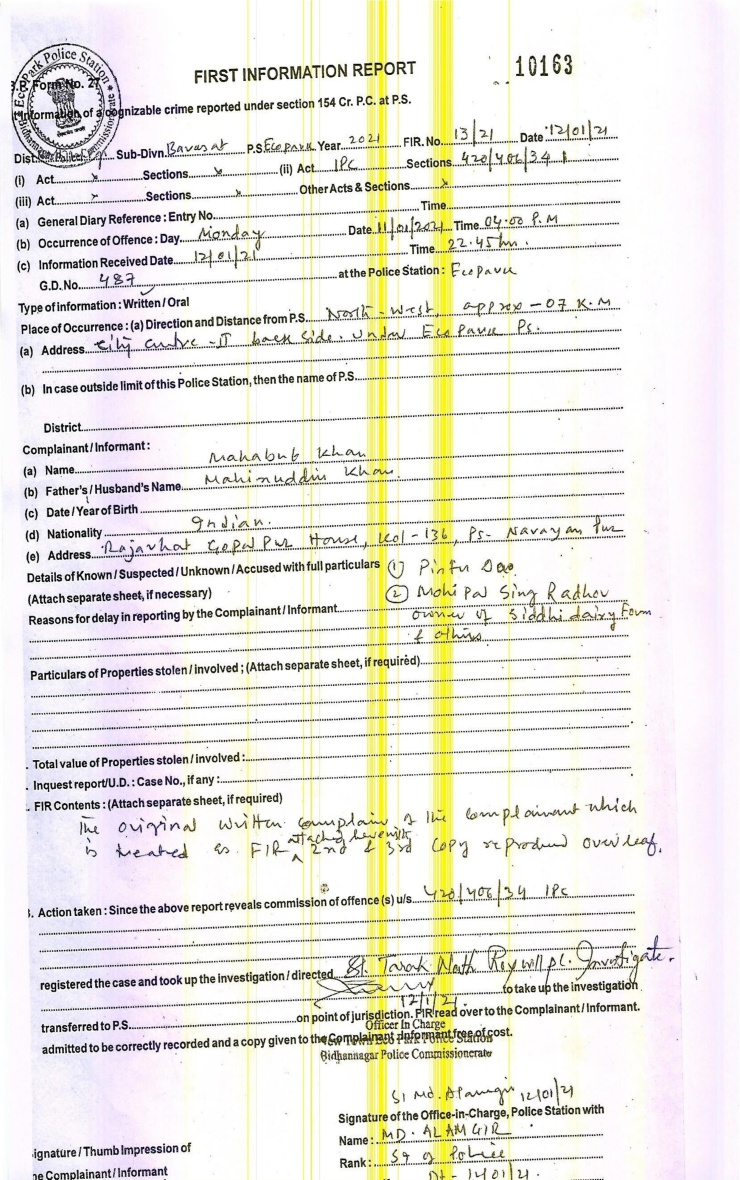 EcoPark Police Station
Bidhannagar Police Commissionerate
Form No. 27
FIRST INFORMATION REPORT
10163
Information of a cognizable crime reported under section 154 Cr. P.C. at P.S.
Dist. Sub-Divn. Barasat P.S. Ecopark Year 2021 FIR. No. 13/21 Date 12/01/21
(i) Act Sections (ii) Act IPC Sections 420/406/34
(iii) Act Sections Other Acts & Sections
(a) General Diary Reference : Entry No. Time
(b) Occurrence of Offence : Day Monday Date 11/01/2021 Time 04.00 P.M
(c) Information Received Date 12/01/21 Time 22.45 hrs.
G.D. No. 487 at the Police Station : Ecopark
Type of information : Written / Oral
Place of Occurrence : (a) Direction and Distance from P.S. North-West, approx - 07 K.M
(a) Address City Centre - II back side. under Eco Park Ps.
(b) In case outside limit of this Police Station, then the name of P.S.
District
Complainant / Informant :
(a) Name Mahabub Khan
(b) Father's / Husband's Name Mahinuddin Khan
(c) Date / Year of Birth
(d) Nationality Indian.
(e) Address Rajarhat Gopalpur House, Kol-136, Ps- Narayanpur
Details of Known / Suspected / Unknown / Accused with full particulars (1) Pintu
(Attach separate sheet, if necessary) (2) Mohipal Sing Radhor
Reasons for delay in reporting by the Complainant / Informant owner of Siddhi dairy Form
& others
Particulars of Properties stolen / involved ; (Attach separate sheet, if required)
. Total value of Properties stolen / involved :
. Inquest report/U.D. : Case No., if any :
. FIR Contents : (Attach separate sheet, if required)
The original written complain of the complainant which
is treated as FIR attached herewith 2nd & 3rd copy reproduced overleaf.
3. Action taken : Since the above report reveals commission of offence (s) u/s 420/406/34 IPC
registered the case and took up the investigation / directed SI. Tarak Nath Roy will pl. Investigate.
to take up the investigation
12/1/21
transferred to P.S. on point of jurisdiction. FIR read over to the Complainant / Informant.
Officer In Charge
admitted to be correctly recorded and a copy given to the Complainant Informant free of cost.
Eco Park Police Station
Bidhannagar Police Commissionerate
SI Md. Alamgir 12/01/21
Signature of the Office-in-Charge, Police Station with
Name : MD. ALAMGIR
ignature / Thumb Impression of
Rank : SI of Police
he Complainant / Informant